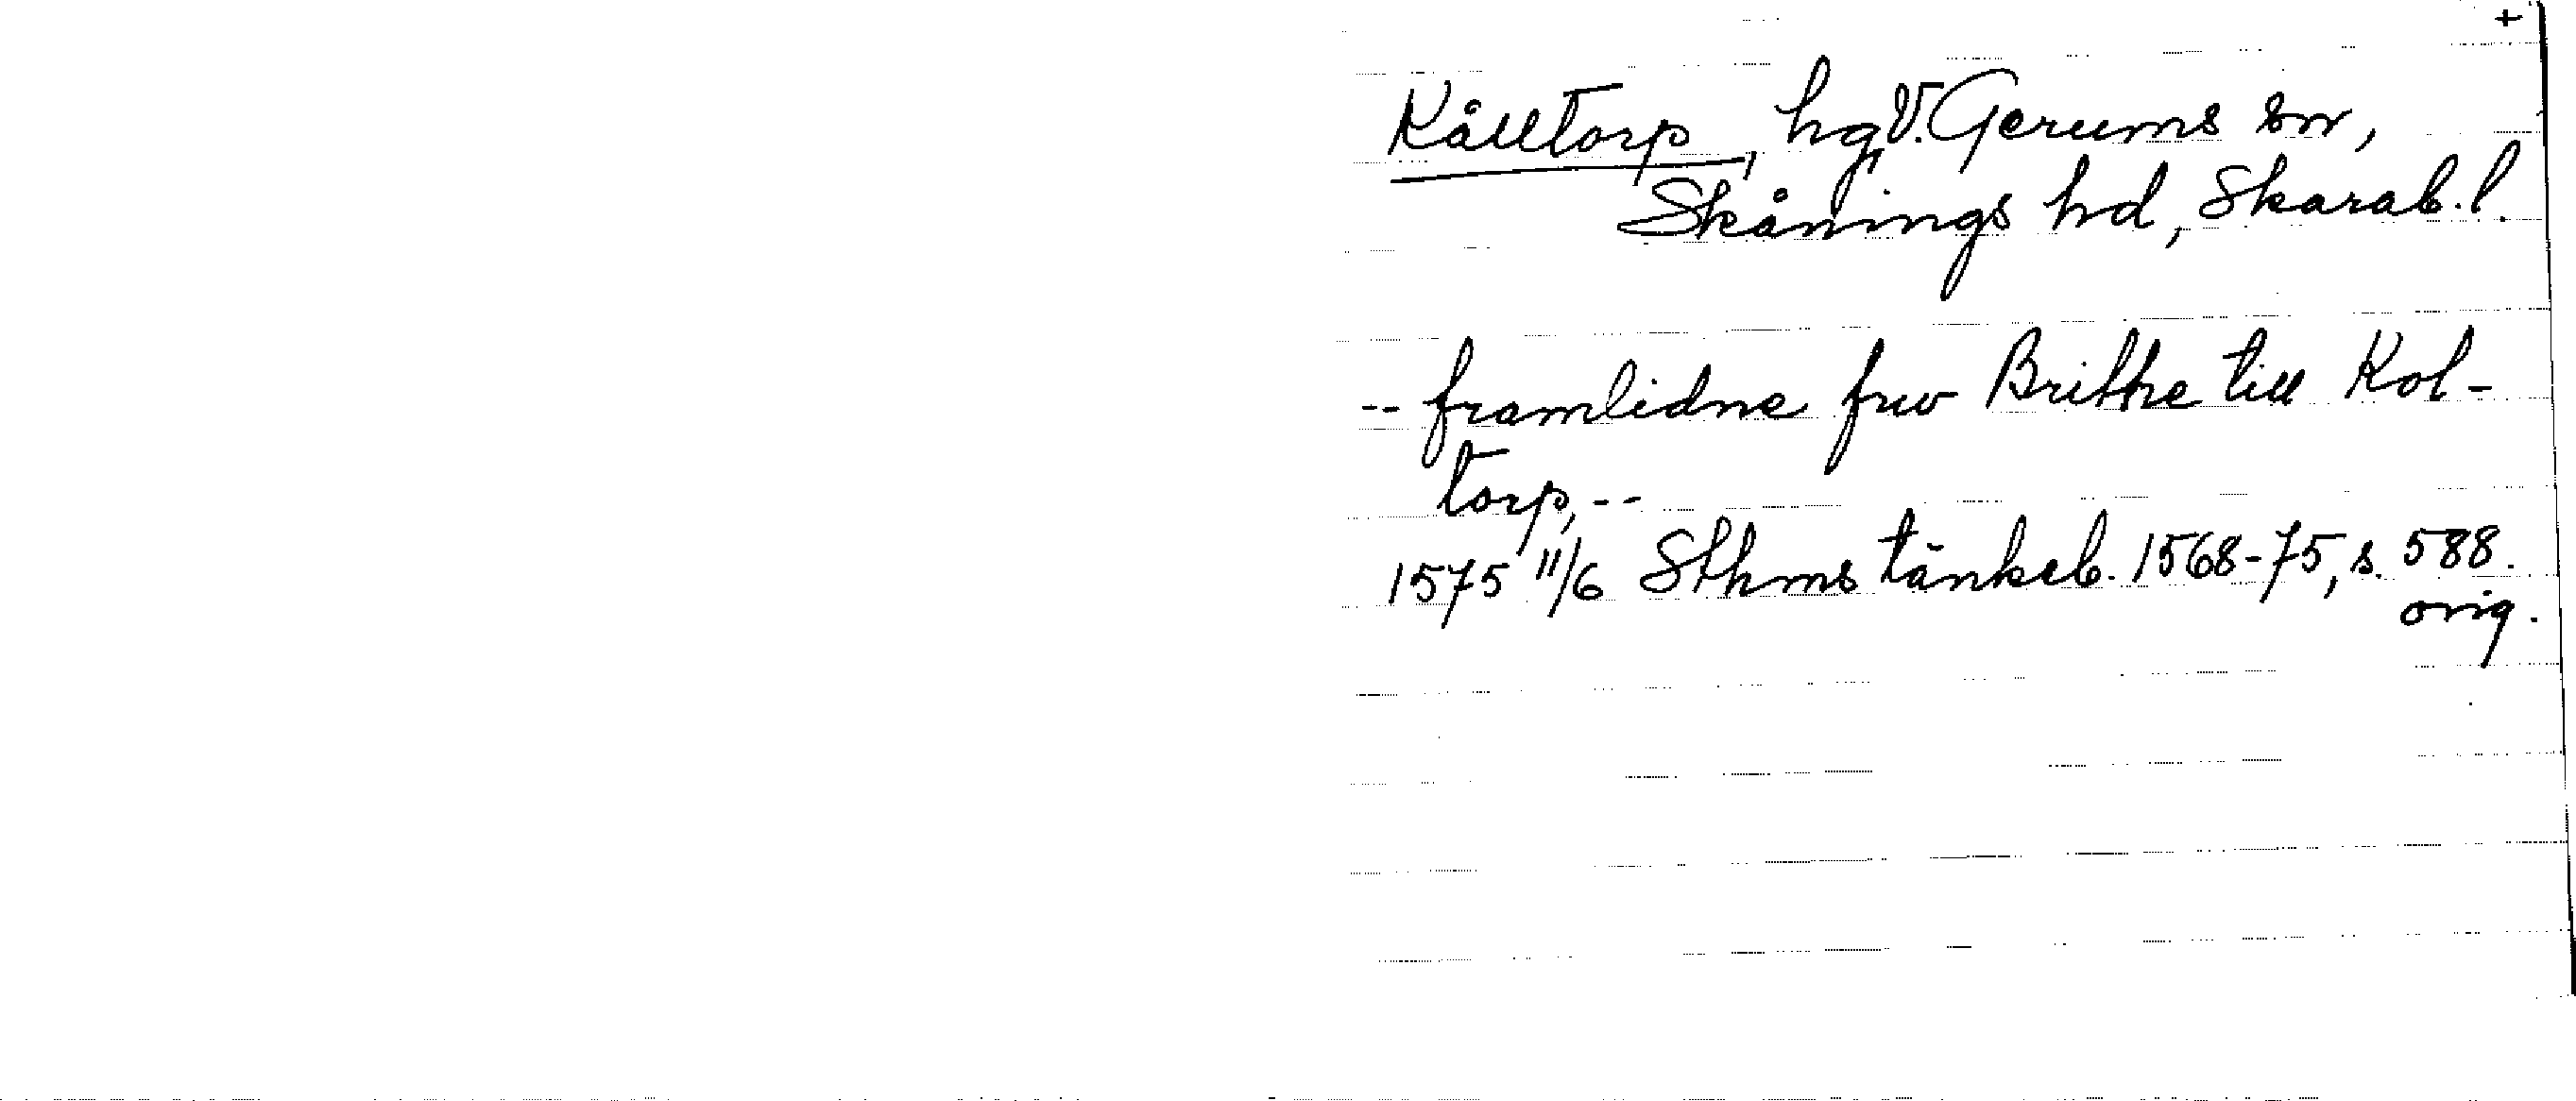 +
Kålltorp, hg, V. Gerums sn,
Skånings hd, Skarab. l.
-- framlidne fruv Britthe till Kol-
torp, --
1575 11/6 Sthms tänkeb. 1568-75, s. 588.
orig.